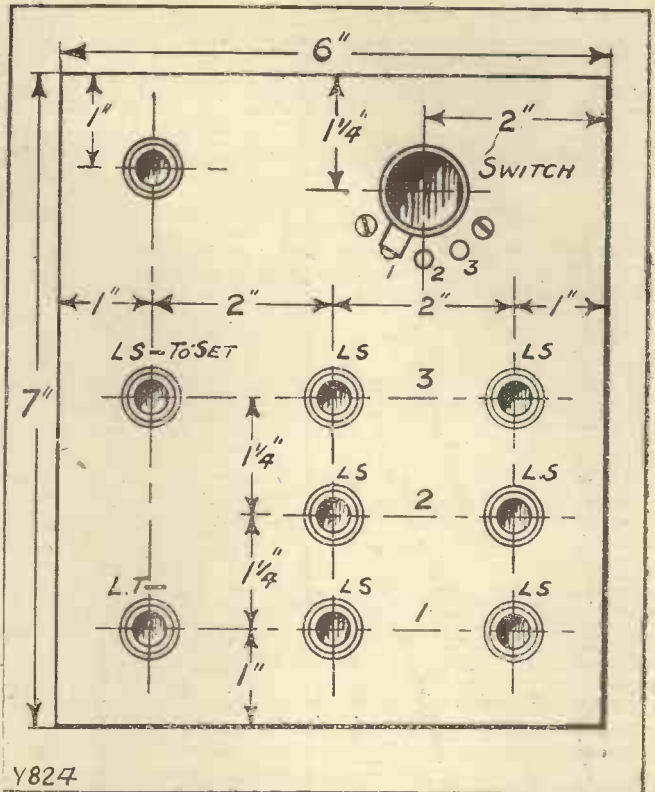 6"
1"
1¼"
2"
SWITCH
2 3
1"
2"
2"
1"
LS-TO SET
LS
LS
7"
3
1¼"
LS
L.S
2
1¼"
L.T-
LS
LS
1
1"
Y824